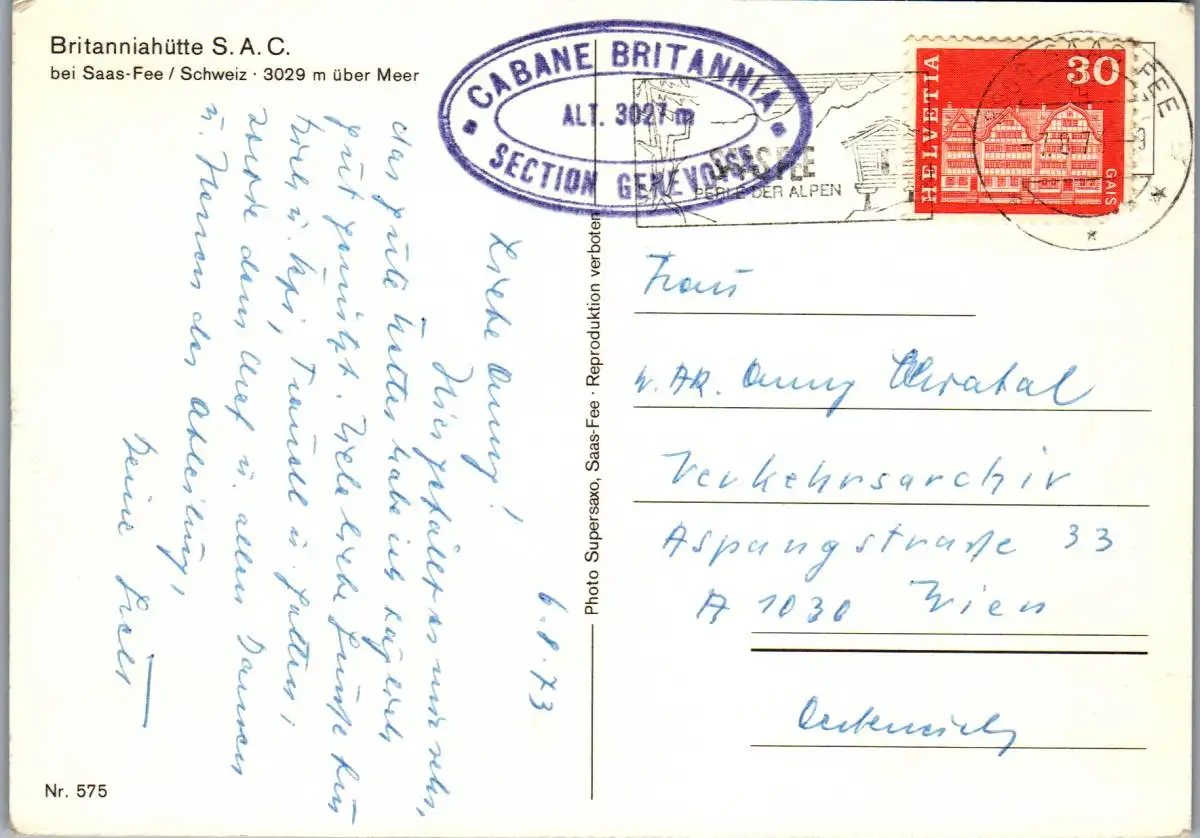 Britanniahütte S. A. C.
bei Saas-Fee / Schweiz · 3029 m über Meer
CABANE BRITANNIA
ALT. 3027 m
SECTION GENEVOISE
SAAS-FEE
PERLE DER ALPEN
HELVETIA
30
GAIS
SAAS-FEE
6.8.73
Liebe Anny!
Hier gefällt es mir sehr,
das gute Wetter habe ich
gut genützt. Viele liebe Grüße für
Dich u.
sowie dem Chef u. allen Damen
u. Herren der Abteilung,
Deine
Photo Supersaxo, Saas-Fee · Reproduktion verboten
Frau
Anny
Verkehrsarchiv
Aspangstraße 33
A 1030 Wien
Österreich
Nr. 575